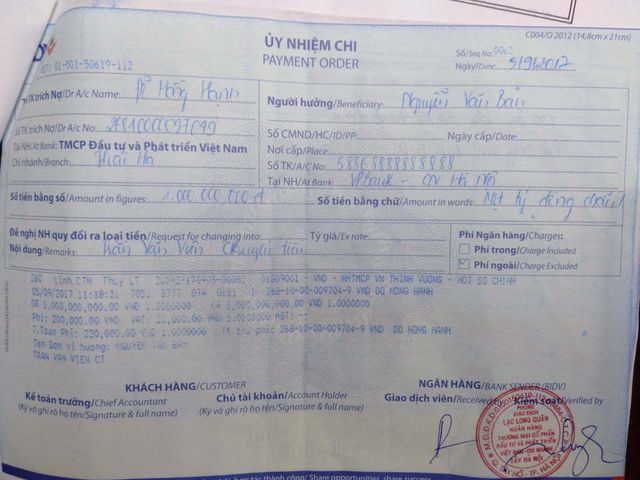 C004/Ố 2012 (14,8cm x 21cm)
ỦY NHIỆM CHI
PAYMENT ORDER
Số/Seq No:
Ngày/Date: 5/9/2017
01-001-50619-112
Tên TK trích Nợ/Dr A/c Name: Đỗ Hồng Hạnh
Số TK trích Nợ/Dr A/c No:
Tại NH/At Bank: TMCP Đầu tư và Phát triển Việt Nam
Chi nhánh/Branch: Thái Hà
Người hưởng/Beneficiary: Nguyễn Văn Bản
Số CMND/HC/ID/PP: Ngày cấp/Date:
Nơi cấp/Place
Số TK/A/C No:
Tại NH/At Bank: VPBank - CN Hà Nội
Số tiền bằng số/Amount in figures: 1.000.000.000đ
Số tiền bằng chữ/Amount in words: Một tỷ đồng chẵn
Đề nghị NH quy đổi ra loại tiền/Request for changing into: Tỷ giá/Ex rate:
Nội dung/Remarks: Trần Văn Viên chuyển tiền
Phí Ngân hàng/Charges:
Phí trong/Charge Included
Phí ngoài/Charge Excluded
260 Linh.CTM Thuy LT 01309001 - VND - NHTMCP VN THINH VUONG - HOI SO CHINH
05/09/2017 11:18:31 705. 8777
DR 1,000,000,000.00 VND 1.0000000 CR 1,000,000,000.00 VND 1.0000000
Phi: 200,000.00 VND VAT: 20,000.00 VND
T.Toan Phi: 220,000.00 VND 1.0000000 TK thu phi: 268-10-00-009704-9 VND DO HONG HANH
Ten Don vi huong: NGUYEN VAN BAN
TRAN VAN VIEN CT
KHÁCH HÀNG/CUSTOMER
Kế toán trưởng/Chief Accountant
(Ký và ghi rõ họ tên/Signature & full name)
Chủ tài khoản/Account Holder
(Ký và ghi rõ họ tên/Signature & full name)
NGÂN HÀNG/BANK SENDER (BIDV)
Giao dịch viên/Received by Kiểm soát/Verified by
PHÒNG
GIAO DỊCH
LẠC LONG QUÂN
NGÂN HÀNG
THƯƠNG MẠI CỔ PHẦN
ĐẦU TƯ VÀ PHÁT TRIỂN
VIỆT NAM - CHI NHÁNH
TÂY HÀ NỘI
Q. TÂY HỒ - T.P. HÀ NỘI
hợp tác thành công/ Share opportunities, share success